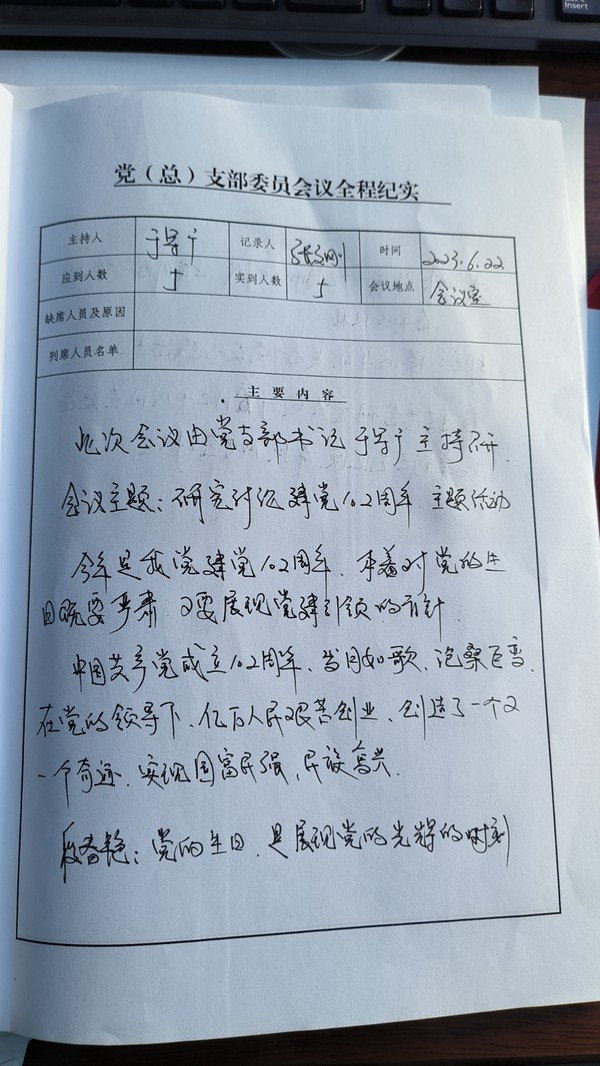 Insert
党（总）支部委员会议全程纪实
主持人 于学广 记录人 时间 2023.6.22
应到人数 5 实到人数 5 会议地点 会议室
缺席人员及原因
列席人员名单
主要内容
此次会议由党支部书记于学广主持召开.
会议主题：研究讨论建党102周年 主题活动
今年是我党建党102周年、本着对党的生
日既要严肃 又要展现党建引领的方针.
中国共产党成立102周年、岁月如歌、沧桑巨变、
在党的领导下、亿万人民艰苦创业、创造了一个又
一个奇迹、实现国富民强、民族复兴.
党的生日、是展现党的光辉的时刻